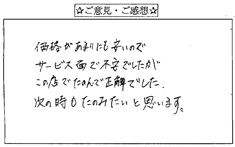 ☆ご意見・ご感想☆
価格があまりにも安いので
サービス面で不安でしたが
この店でたのんで正解でした。
次の時もたのみたいと思います。